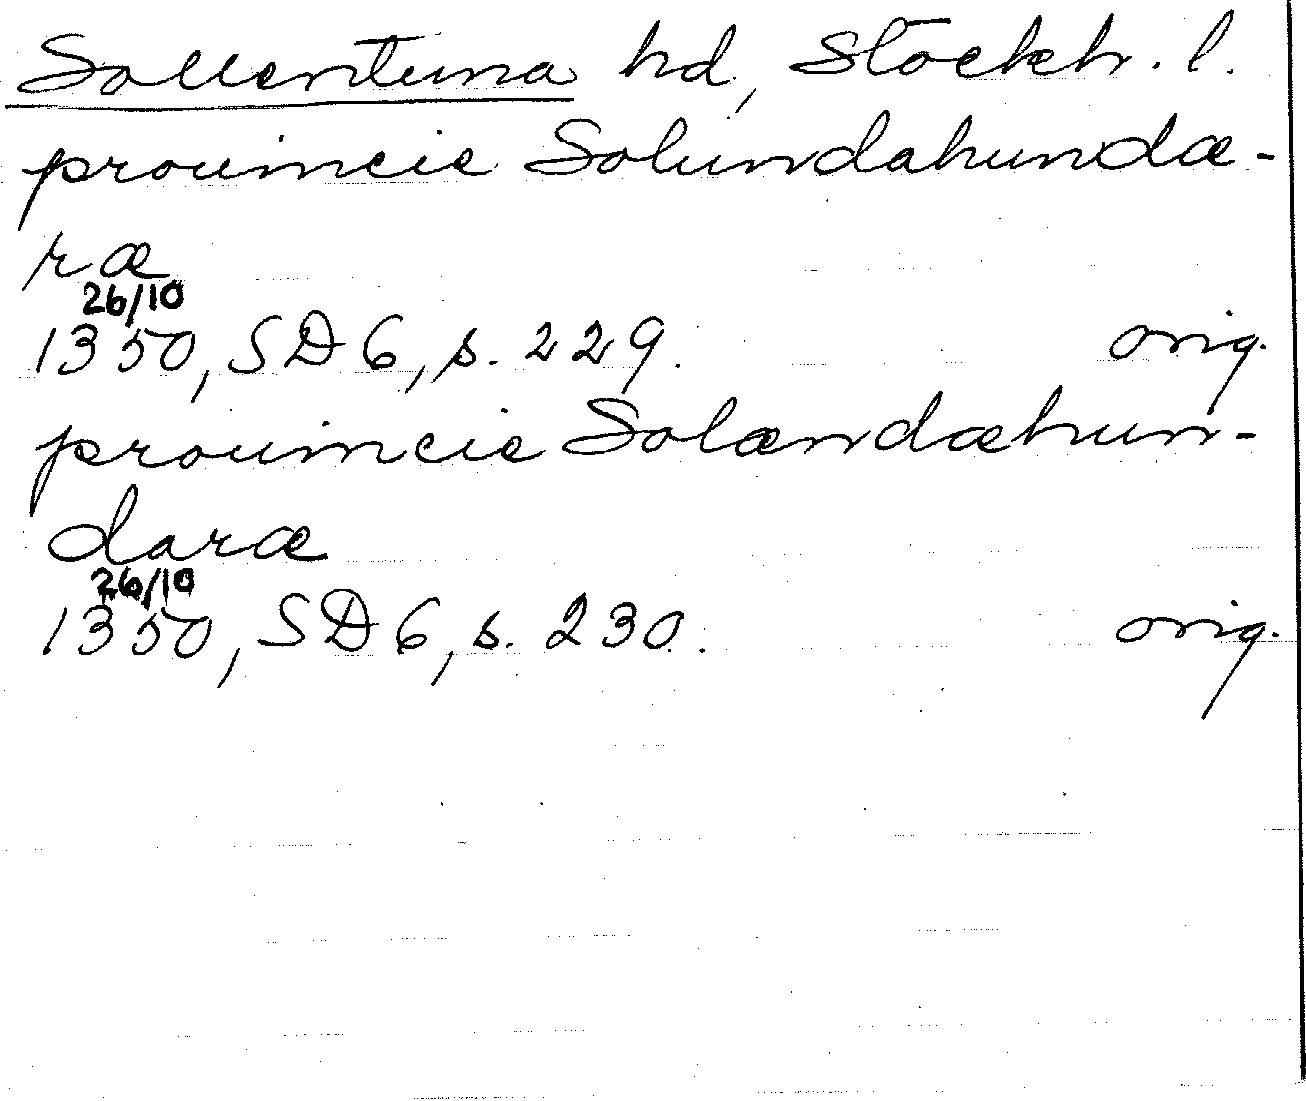 Sollentuna hd, Stockh. l.
prouincie Solundahundæ-
ræ
26/10
1350, SD 6, s. 229. orig.
prouincie Solændæhun-
daræ
26/10
1350, SD 6, s. 230. orig.